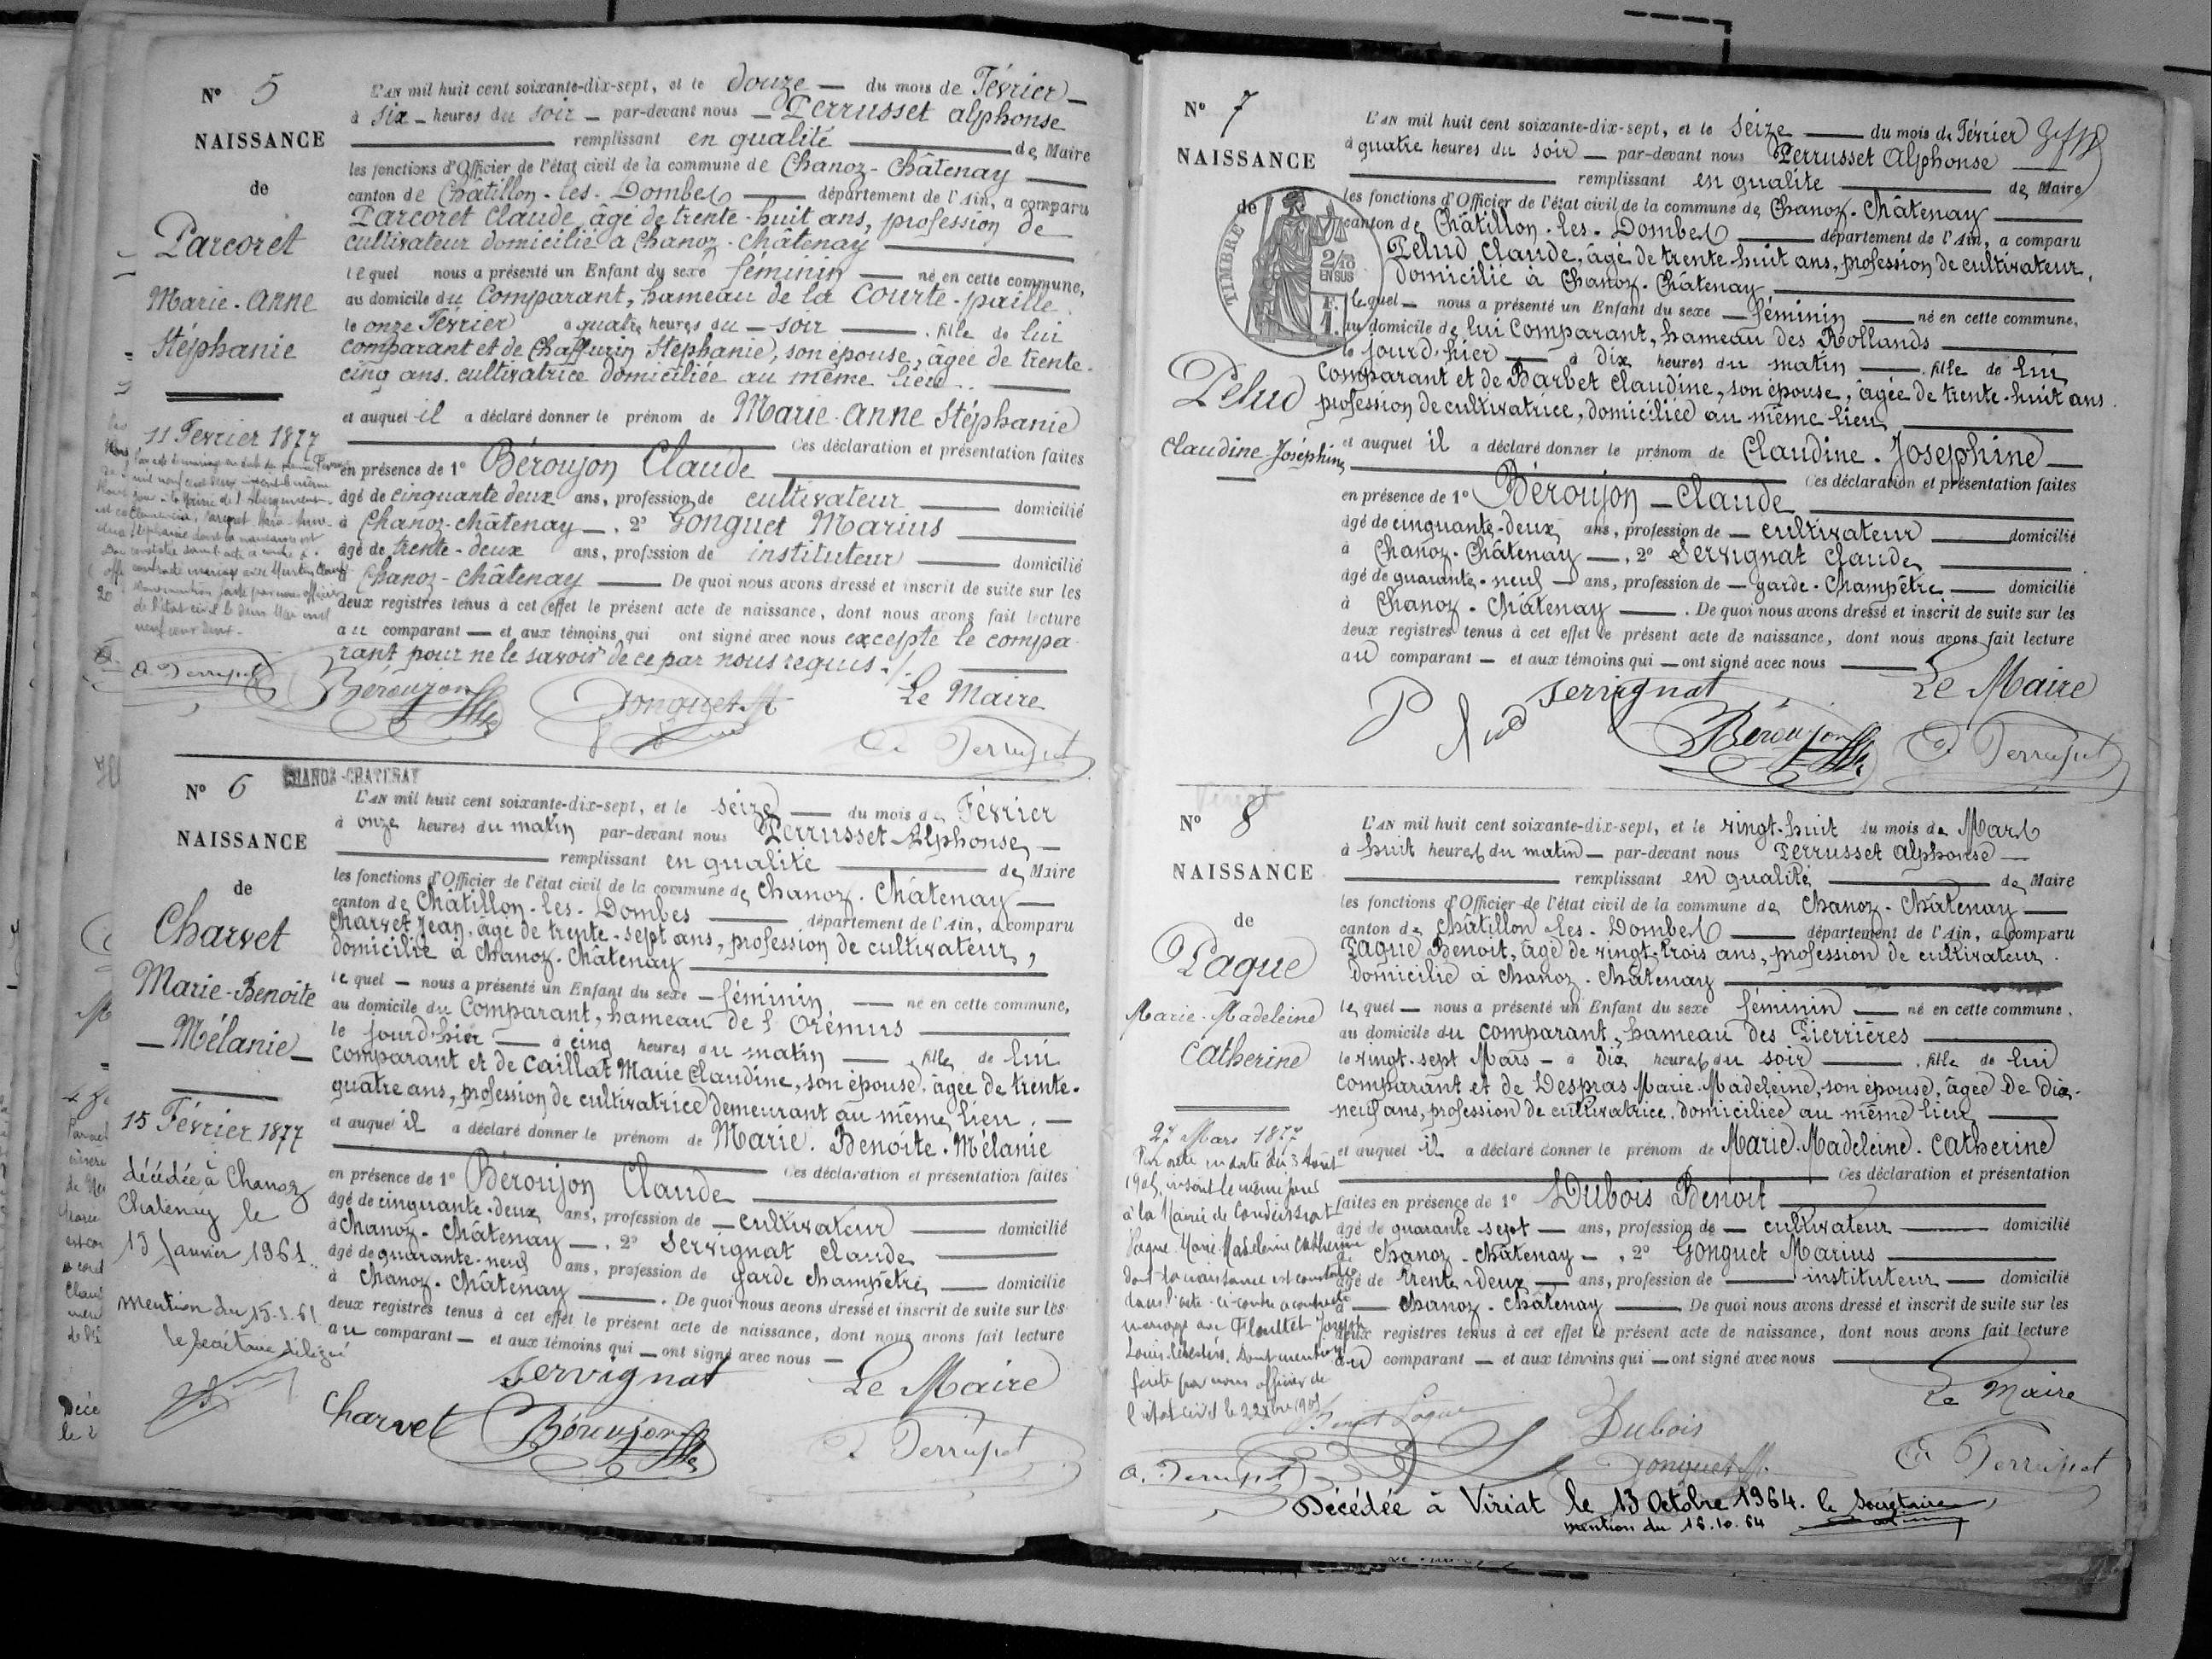 N° 5
NAISSANCE
de
Parcoret
Marie-Anne
Stéphanie
11 Février 1877
L'AN mil huit cent soixante-dix-sept, et le douze — du mois de Février —
à six — heures du soir — par-devant nous — Perrusset Alphonse
remplissant en qualité — de Maire
les fonctions d'Officier de l'état civil de la commune de Chanoz-Châtenay —
canton de Châtillon-les-Dombes — département de l'Ain, a comparu
Parcoret Claude, âgé de trente-huit ans, profession de
cultivateur domicilié à Chanoz-Châtenay —
lequel nous a présenté un Enfant du sexe féminin — né en cette commune,
au domicile du Comparant, hameau de la Courte-paille.
le onze Février à quatre heures du — soir — . fille de lui
comparant et de Chaffurin Stéphanie, son épouse, âgée de trente-
cinq ans. cultivatrice domiciliée au même lieu. —
et auquel il a déclaré donner le prénom de Marie-Anne Stéphanie
Ces déclaration et présentation faites
en présence de 1° Béroujon Claude —
âgé de cinquante deux ans, profession de cultivateur — domicilié
à Chanoz-Châtenay — . 2° Gonguet Marius —
âgé de trente-deux ans, profession de instituteur — domicilié
à Chanoz-Châtenay — De quoi nous avons dressé et inscrit de suite sur les
deux registres tenus à cet effet le présent acte de naissance, dont nous avons fait lecture
au comparant — et aux témoins qui ont signé avec nous excepté le compa-
rant pour ne le savoir de ce par nous requis. /.
de l'état civil le deux Mai mil
neuf cent deux.
A. Perrusset Béroujon Gonguet M. Le Maire
A. Perrusset
N° 6 CHANOZ-CHATENAY
NAISSANCE
de
Charvet
Marie-Benoite
— Mélanie —
15 Février 1877
décédée à Chanoz
Chatenay le
13 Janvier 1961.
mention du 15.1.61
le Secrétaire délégué
L'AN mil huit cent soixante-dix-sept, et le seize — du mois de Février
à onze heures du matin par-devant nous Perrusset Alphonse, —
remplissant en qualité — de Maire
les fonctions d'Officier de l'état civil de la commune de Chanoz-Châtenay —
canton de Châtillon-les-Dombes — département de l'Ain, a comparu
Charvet Jean, âgé de trente-sept ans, profession de cultivateur,
domicilié à Chanoz-Châtenay —
lequel — nous a présenté un Enfant du sexe — féminin — né en cette commune,
au domicile du Comparant, hameau de l'Orémus —
le jourd'hier — à cinq heures du matin — , fille de lui
comparant et de Caillat Marie Claudine, son épouse, âgée de trente-
quatre ans, profession de cultivatrice demeurant au même lieu. —
et auquel il a déclaré donner le prénom de Marie. Benoite. Mélanie
Ces déclaration et présentation faites
en présence de 1° Béroujon Claude —
âgé de cinquante-deux ans, profession de — cultivateur — domicilié
à Chanoz-Châtenay — . 2° Servignat Claude —
âgé de quarante-neuf ans, profession de garde champêtre — domicilié
à Chanoz-Châtenay — . De quoi nous avons dressé et inscrit de suite sur les
deux registres tenus à cet effet le présent acte de naissance, dont nous avons fait lecture
au comparant — et aux témoins qui — ont signé avec nous —
Servignat Le Maire
Charvet Béroujon A. Perrusset
N° 7
NAISSANCE
de
TIMBRE
2/10
EN SUS
Pelud
Claudine-Joséphine
L'AN mil huit cent soixante-dix-sept, et le seize — du mois de Février
à quatre heures du soir — par-devant nous Perrusset Alphonse —
remplissant en qualité — de Maire
les fonctions d'Officier de l'état civil de la commune de Chanoz-Châtenay —
canton de Châtillon-les-Dombes — département de l'Ain, a comparu
Pelud Claude, âgé de trente huit ans, profession de cultivateur,
domicilié à Chanoz-Châtenay —
lequel — nous a présenté un Enfant du sexe — féminin — né en cette commune,
au domicile de lui Comparant, hameau des Rollands —
le jourd'hier — à dix heures du matin — , fille de lui
comparant et de Barbet Claudine, son épouse, âgée de trente-huit ans.
profession de cultivatrice, domiciliée au même lieu —
et auquel il a déclaré donner le prénom de Claudine. Joséphine —
Ces déclaration et présentation faites
en présence de 1° Béroujon — Claude —
âgé de cinquante-deux ans, profession de — cultivateur — domicilié
à Chanoz-Châtenay — , 2° Servignat Claude —
âgé de quarante-neuf — ans, profession de — garde-Champêtre — domicilié
à Chanoz-Châtenay — . De quoi nous avons dressé et inscrit de suite sur les
deux registres tenus à cet effet le présent acte de naissance, dont nous avons fait lecture
au comparant — et aux témoins qui — ont signé avec nous —
Pelud Servignat Le Maire
Béroujon A. Perrusset
Viriat
N° 8
NAISSANCE
de
Pague
Marie-Madeleine
Catherine
27 Mars 1877
Par acte en date du 3 Août
1905, inscrit le même jour
à la Mairie de Condeissiat
Pague Marie Madeleine Catherine
dont la naissance est constatée
dans l'acte ci-contre a contracté
mariage avec Flouttet Joseph
Louis. Dont mention
faite par nous officier de
l'état civil le
L'AN mil huit cent soixante-dix-sept, et le vingt-huit du mois de Mars
à huit heures du matin — par-devant nous Perrusset Alphonse —
remplissant en qualité — de Maire
les fonctions d'Officier de l'état civil de la commune de Chanoz-Châtenay —
canton de Châtillon-les-Dombes — département de l'Ain, a comparu
Pague Benoit, âgé de vingt-trois ans, profession de cultivateur.
domicilié à Chanoz-Châtenay —
lequel — nous a présenté un Enfant du sexe féminin — né en cette commune,
au domicile du comparant, hameau des Pierrières —
le vingt-sept Mars — à dix heures du soir — , fille de lui
comparant et de Despras Marie-Madeleine, son épouse, âgée de dix-
neuf ans, profession de cultivatrice, domiciliée au même lieu —
et auquel il a déclaré donner le prénom de Marie. Madeleine. Catherine
Ces déclaration et présentation
faites en présence de 1° Dubois Benoit —
âgé de quarante-sept — ans, profession de — cultivateur — domicilié
à Chanoz-Châtenay — , 2° Gonguet Marius —
âgé de trente-deux — ans, profession de — instituteur — domicilié
à — Chanoz-Châtenay — De quoi nous avons dressé et inscrit de suite sur les
deux registres tenus à cet effet le présent acte de naissance, dont nous avons fait lecture
au comparant — et aux témoins qui — ont signé avec nous —
Le Maire
Benoit Pague Dubois
A. Perrusset Gonguet M. A. Perrusset
Décédée à Viriat le 13 Octobre 1964. le Secrétaire
mention du 16.10.64